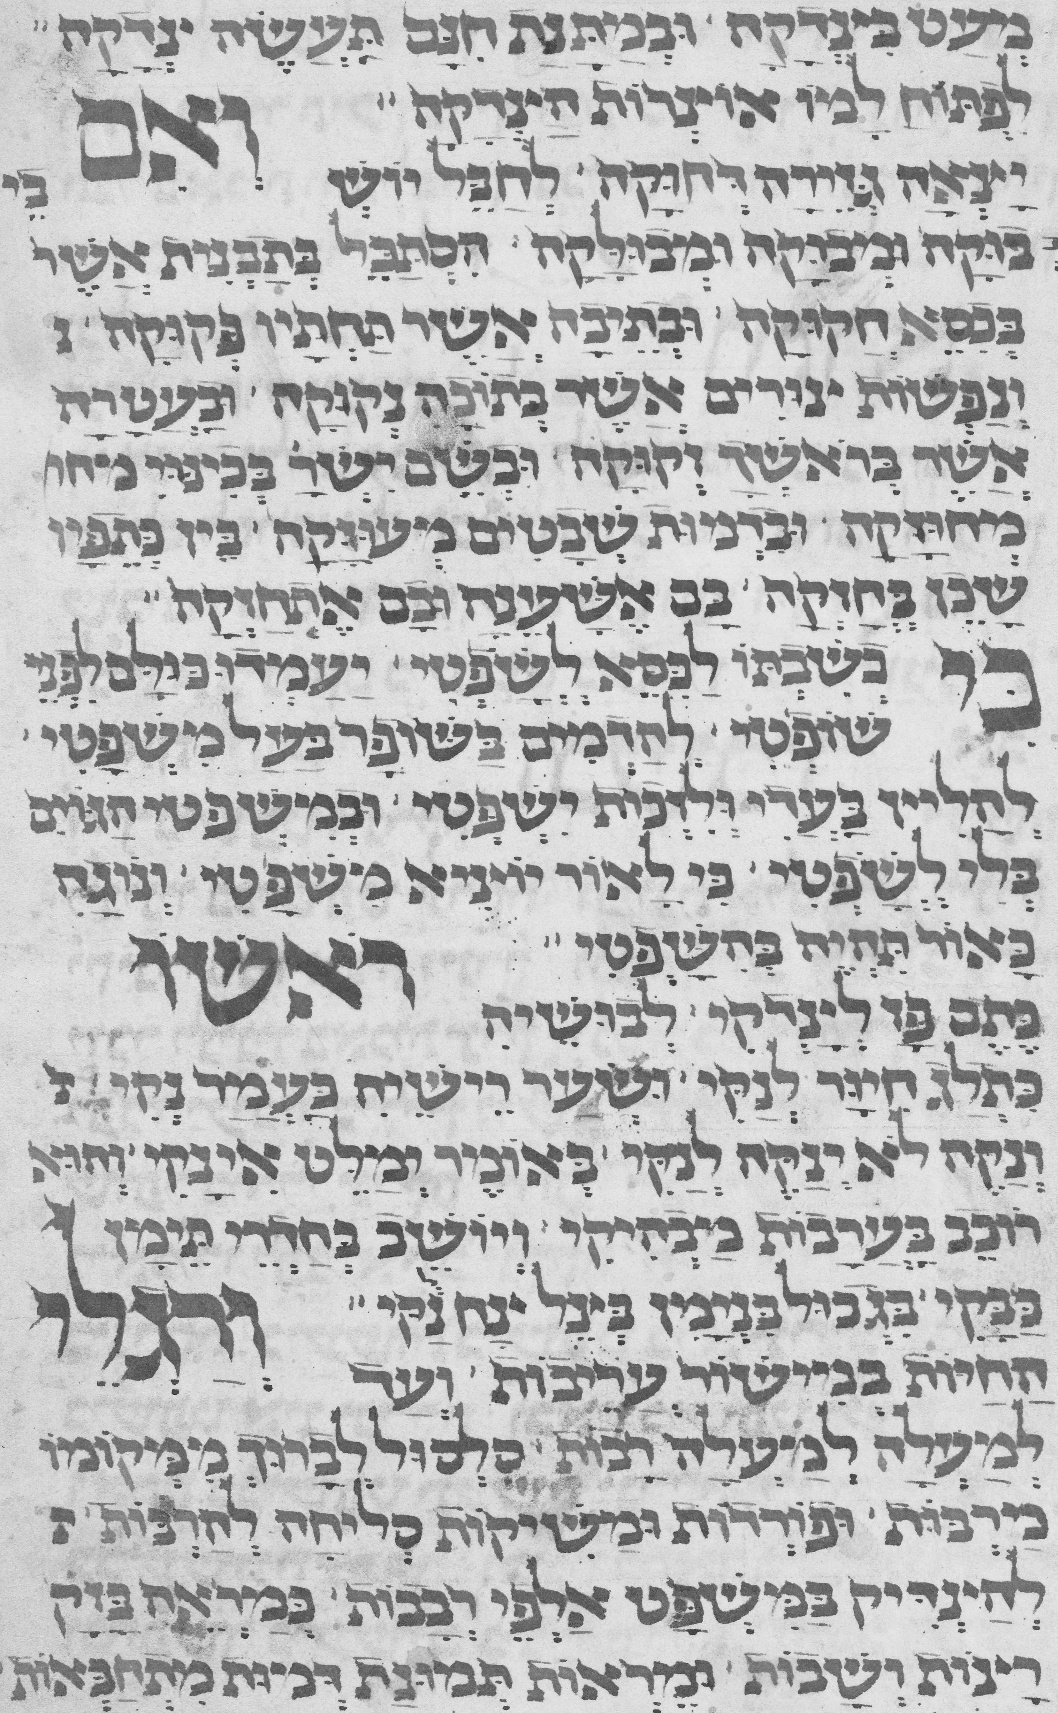 מעט בצדקה · ובמתנת חנם תעשה צדקה
לפתוח למו אוצרות הצדקה
ואם
יצאה גזירה דחוקה · לחבל יוש בי
בוקה ומבוקה ומבולקה · הסתכל בתבנית אשר
בכסא חקוקה · ובתיבה אשר תחתיו פקוקה ·
ונפשות יצורים אשר בתוכה נקוקה · ובעטרה
אשר בראשך זקוקה · ובשם ישר בכינוי מיחו
מיחוזקה · ובדמות שבטים מעונקה · בין כתפיו
שכן בחזקה · בם אשעינה ובם אתחזקה
כך
בשבתו לכסא לשפטי · יעמדו כולם לפני
שופטי · להדמים בשופר בעל משפטי ·
להליץ בעדי בלדכות ישפטי · ובמשפטי הגוים
בלי לשפטי · כי לאור יוציא משפטי · ונוגה
כאור תהיה בהשפטי
ראשך
כתם פז ליצדקי · לבושיה
כתלג חיוור לנקי · ושער רישיה כעמר נקי
ונקה לא ינקה לנקי · באומר ימלט אי נקי · והוא
רוכב בערבות מבהיקי · ויושב בחדרי תימן
בבקי · בגבול בנימין בצל ינח נקי
ורגלי
החיות בכיישור עריבות · ועד
למעלה למעלה רבות · סלסול לברוך ממקומו
מירבות · ופורדות ומשיקות סליחה להרבות
להצדיק במשפט אלפי רבבות · כמראה בזק
רצות ושבות · ומראות תמונת דמות מתחבאות